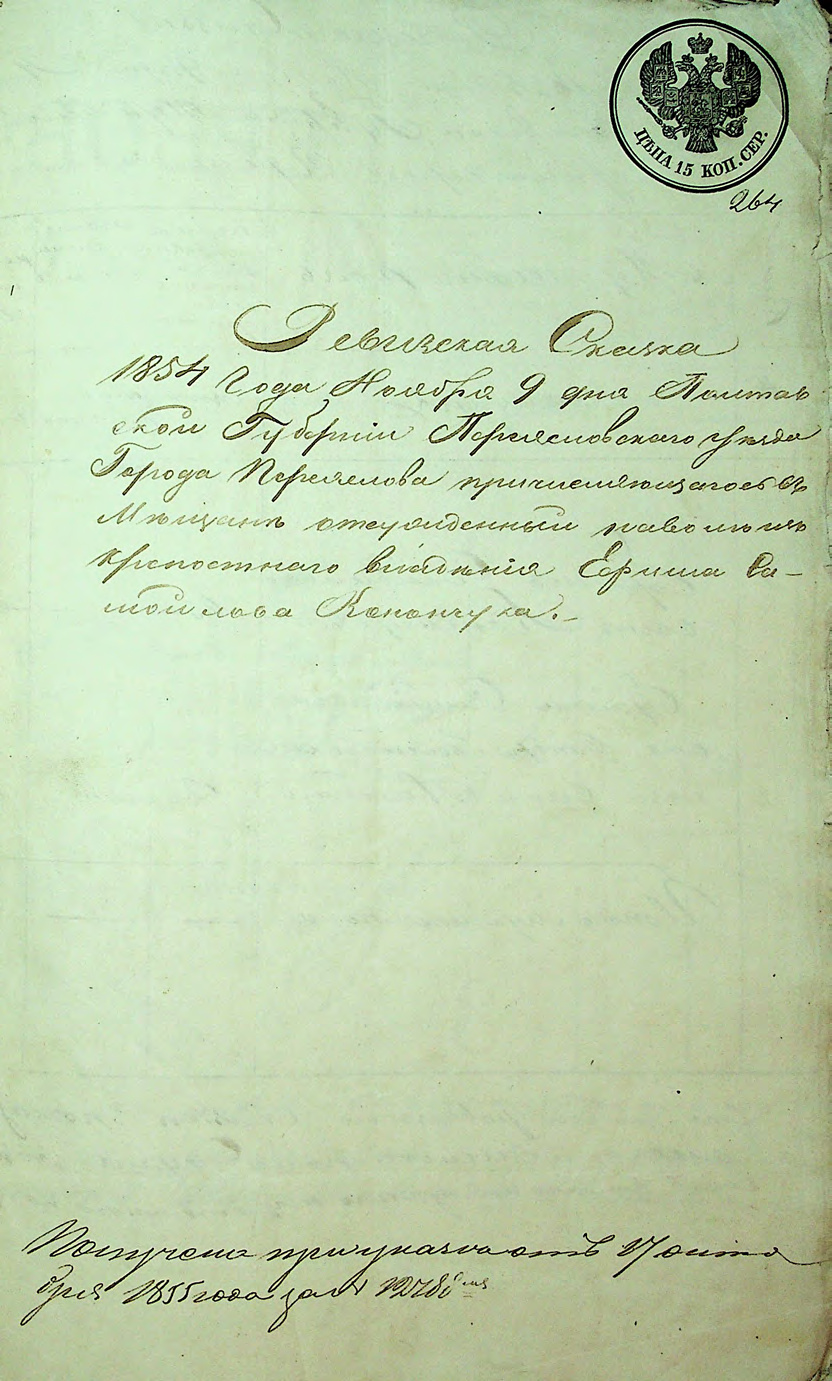 ЦѢНА 15 КОП. СЕР.
264
Ревизская Сказка
1854 Года Ноября 9 дня Полтав
ской Губернии Переясловскаго уезда
Города Переяслова причисляющагося въ
Мещане отсужденный на волю изъ
крепостнаго владѣнія Ефима Са-
мойлова Конончука.
Получена при указе отъ 17 октя
бря 1855 года за №